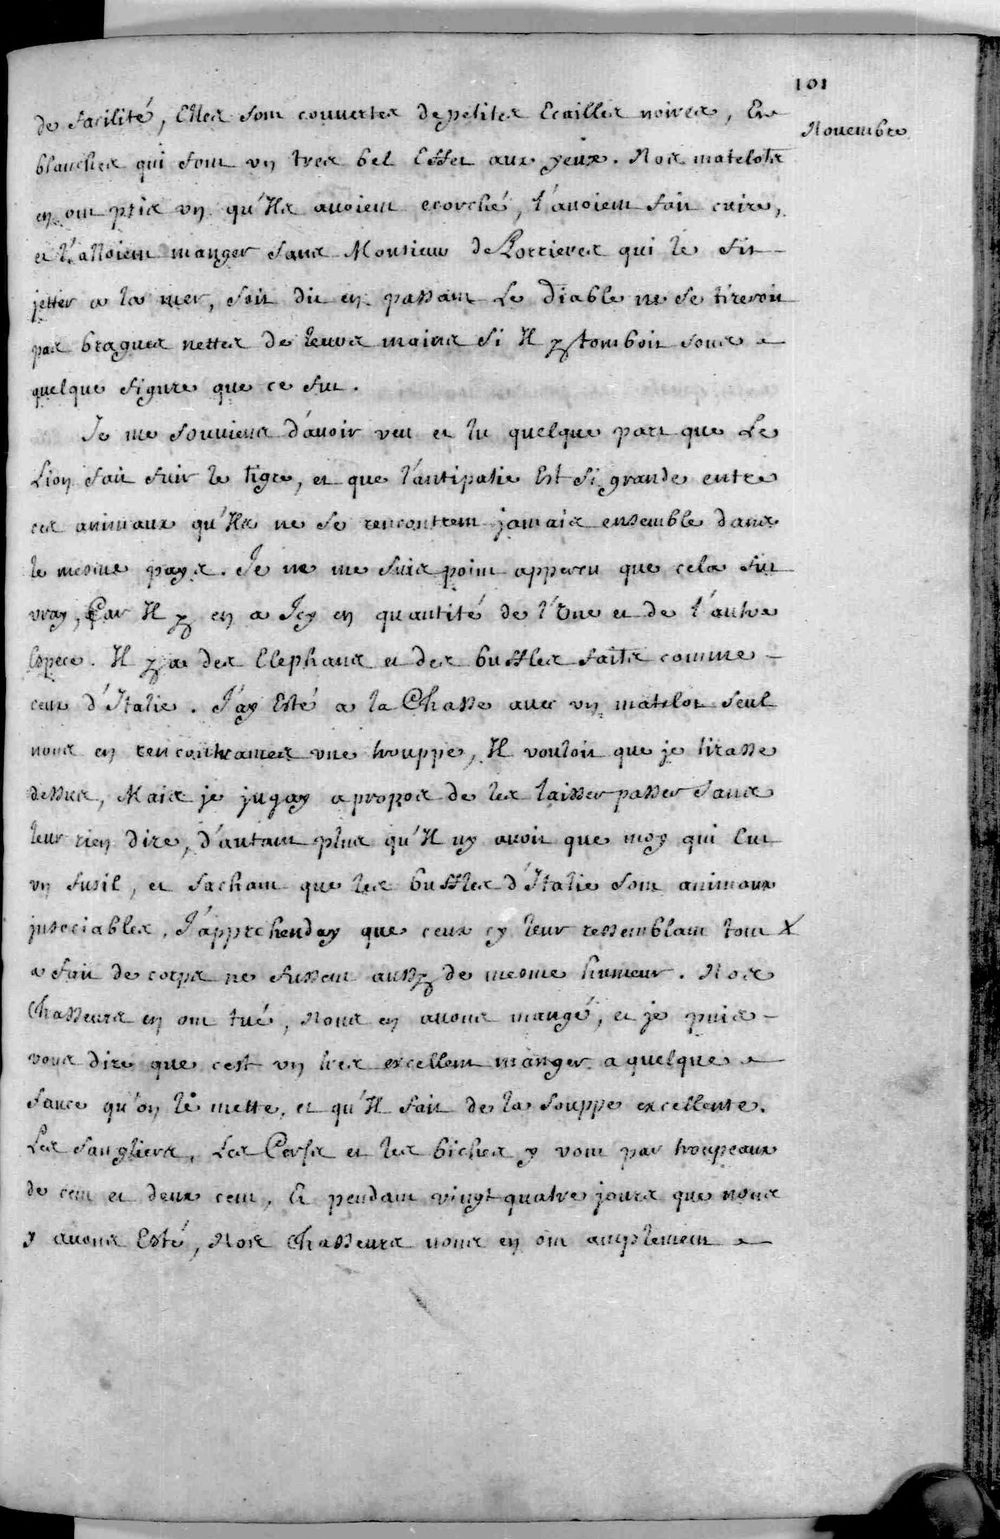 101
Nouembre
de facilité, Elles sont couvertes de petites Ecailles noires, Et
blanches qui font vn tres bel Effet aux yeux. Nos matelots
en ont pris vn qu'Ils auoient ecorché, l'auoient fait cuire,
et l'alloient manger sans Monsieur de Porrieres qui le fit
jetter a la mer, soit dit en passant Le diable ne se tireroit
pas bragues nettes de leurs mains si Il y tomboit sous
quelque figure que ce fut.
Je me souuiens d'auoir veu et lu quelque part que Le
Lion fait fuir le tigre, et que l'antipatie Est si grande entre
ces animaux qu'Ils ne se rencontrent jamais ensemble dans
le mesme pays. Je ne me suis point apperceu que cela fut
vray, Car Il y en a Icy en quantité de l'Vne et de l'autre
Espece. Il y a des Elephans et des buffles faits comme
ceux d'Italie. J'ay Esté a la Chasse auec vn matelot seul
nous en rencontrames vne trouppe, Il vouloit que je tirasse
dessus, Mais je jugay apropos de les laisser passer sans
leur rien dire, d'autant plus qu'Il ny auoit que moy qui Eut
vn fusil, et sachant que les buffles d'Italie sont animaux
insociables, J'apprehenday que ceux cy leur ressemblant tout
a fait de corps ne fussent aussy de mesme humeur. Nos
Chasseurs en ont tué, Nous en auons mangé, et je puis
vous dire que cest vn tres excellent manger a quelque
sauce qu'on le mette, et qu'Il fait de la souppe excellente.
Les sangliers, Les Cerfs et les biches y vont par troupeaux
de cent et deux cent, Et pendant vingt quatre jours que nous
y auons Esté, Nos Chasseurs nous en ont amplement